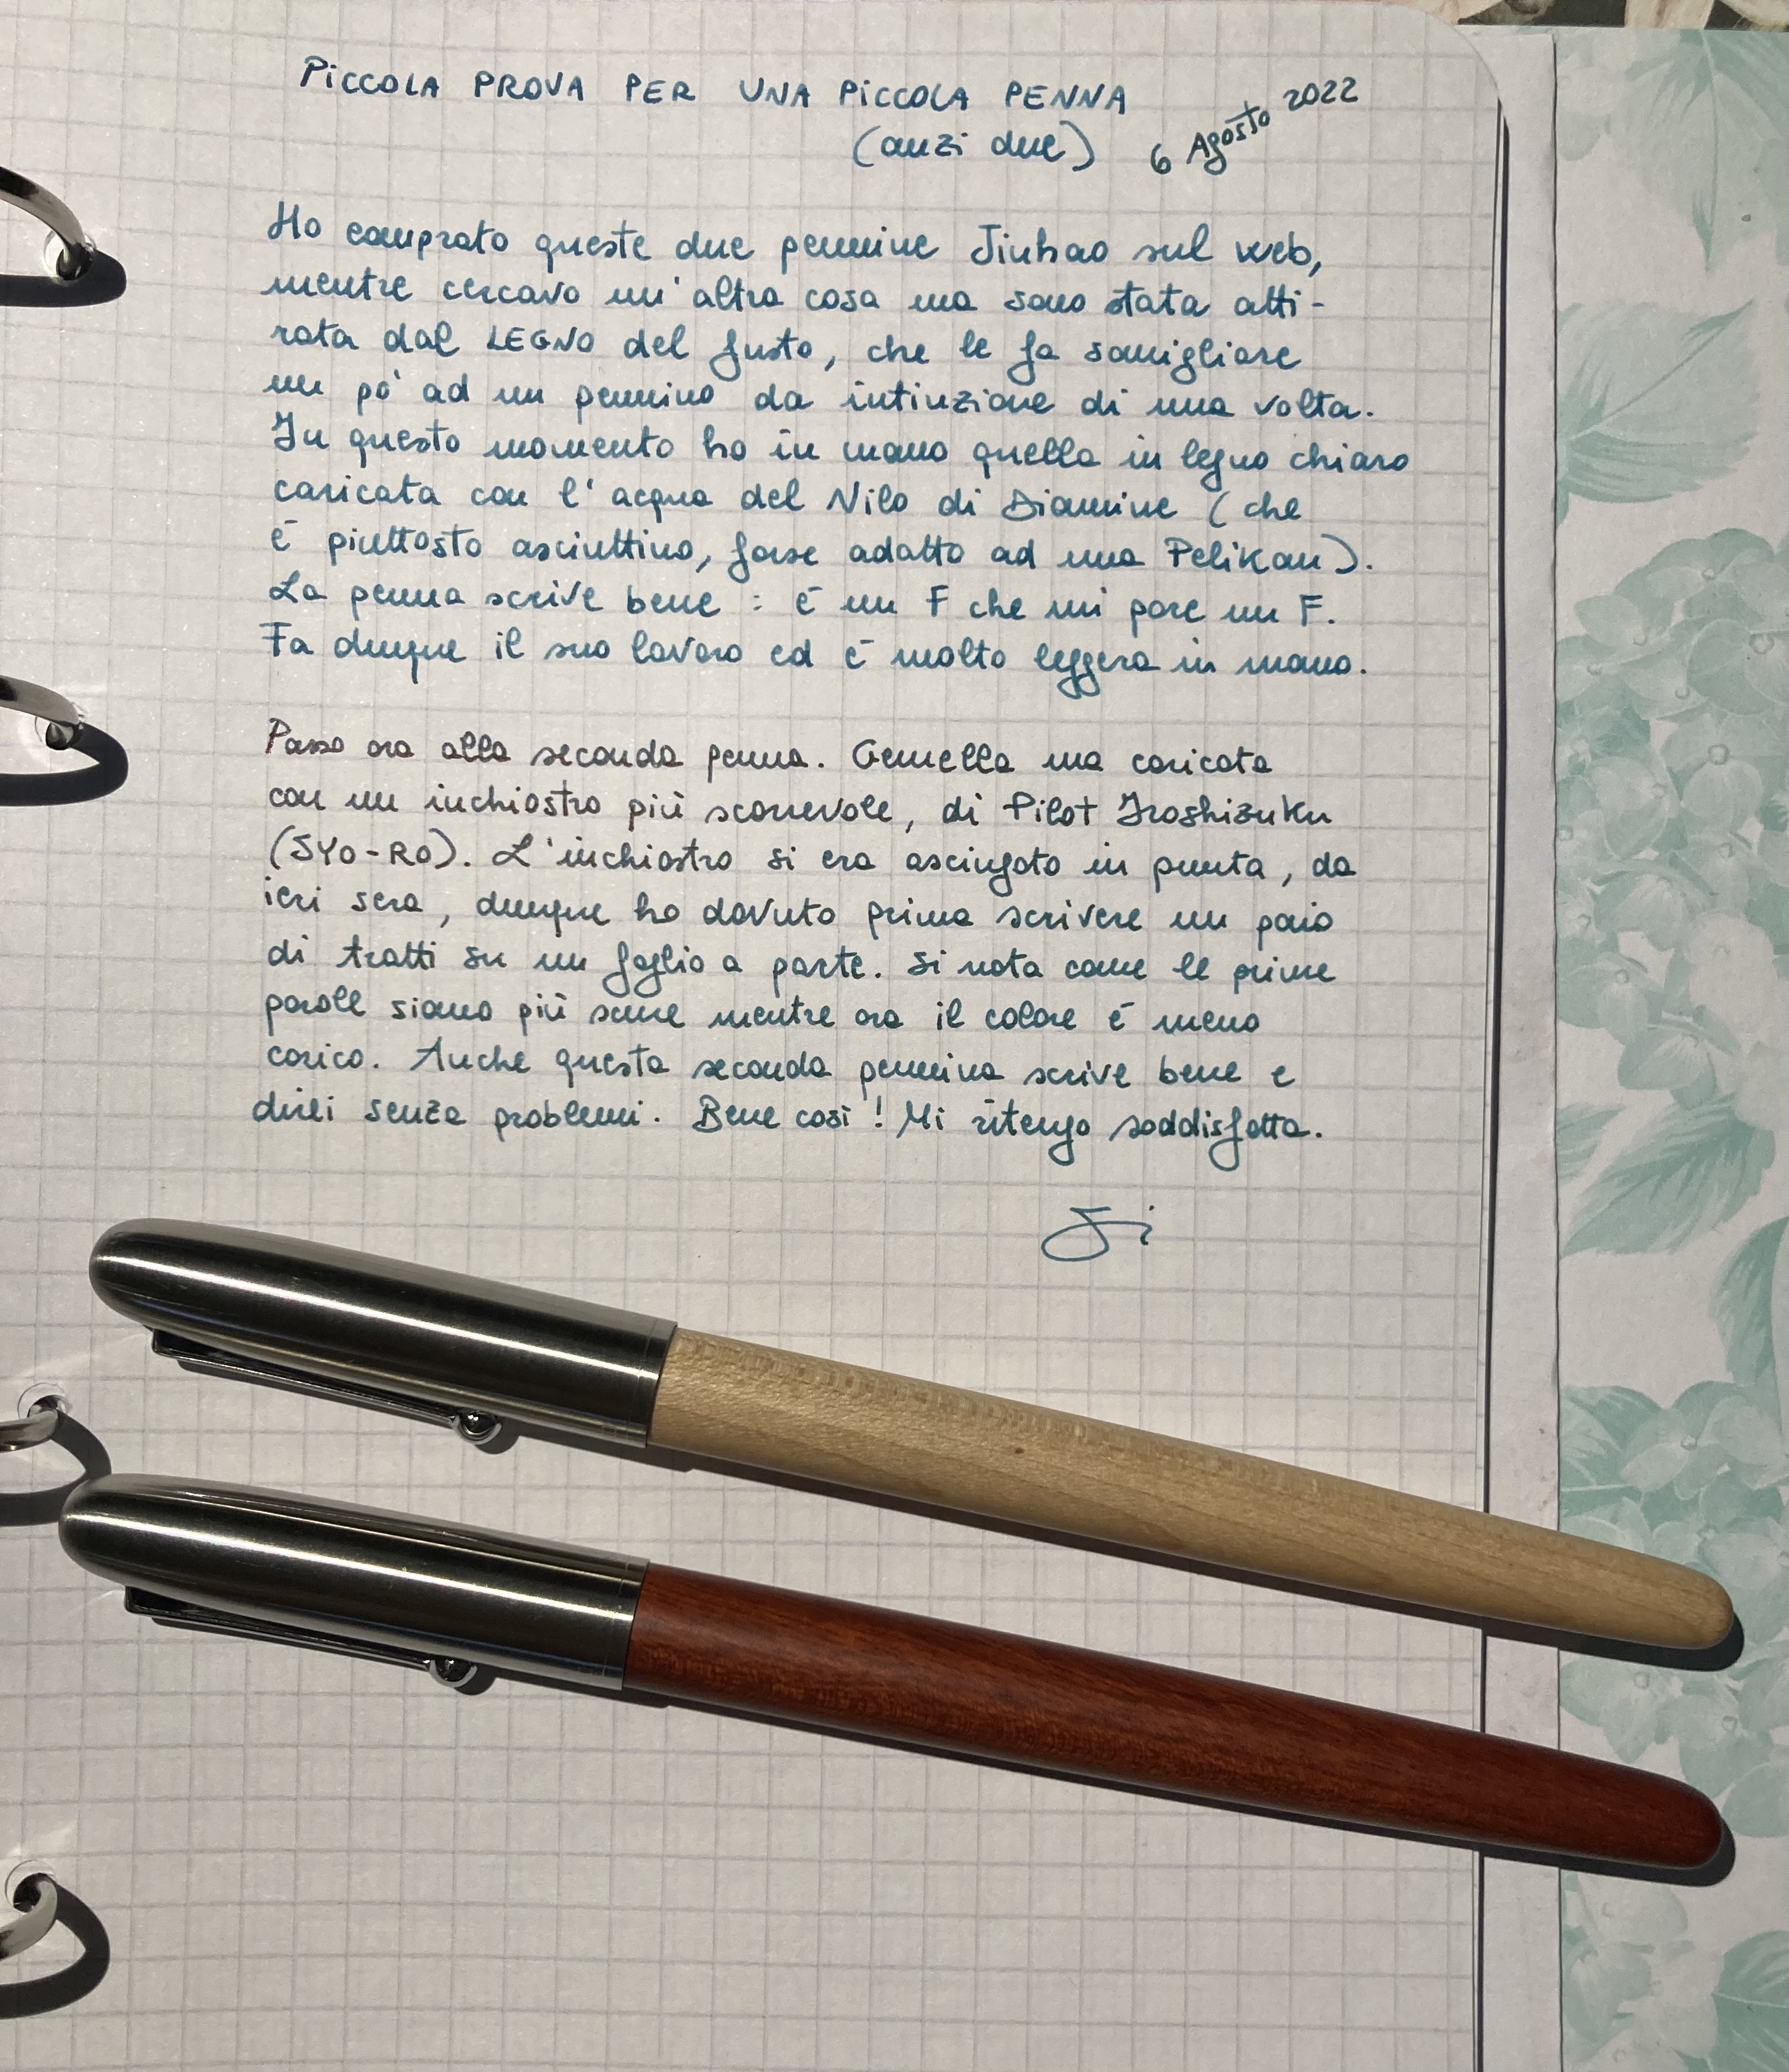 PiCCOLA PROVA PER UNA PiCCOLA PENNA
(anzi due)
6 Agosto 2022
Ho comprato queste due pennine Jinhao sul web,
mentre cercavo un'altra cosa ma sono stata atti-
rata dal LEGNO del fusto, che le fa somigliare
un pò ad un pennino da intinzione di una volta.
In questo momento ho in mano quella in legno chiaro
caricata con l'acqua del Nilo di Diamine (che
è piuttosto asciuttino, forse adatto ad una Pelikan).
La penna scrive bene : è un F che mi pare un F.
Fa dunque il suo lavoro ed è molto leggera in mano.
Passo ora alla seconda penna. Gemella ma caricata
con un inchiostro più scorrevole, di Pilot Iroshizuku
(SYO-RO). L'inchiostro si era asciugato in punta, da
ieri sera, dunque ho dovuto prima scrivere un paio
di tratti su un foglio a parte. Si nota come le prime
parole siano più scure mentre ora il colore è meno
carico. Anche questa seconda pennina scrive bene e
direi senza problemi. Bene così! Mi ritengo soddisfatta.